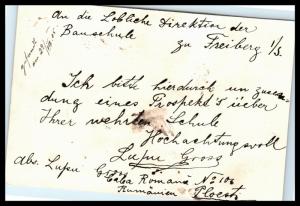 An die Löbliche Direktion der
Bauschule
zu Freiberg i/S.
Ich bitte hierdurch um zusen-
dung eines Prospekt's ueber
Ihrer wehrten Schule
Hochachtungsvoll
Lupu
Abs. Lupu
Calea Romană No 106
Rumänien Ploesti